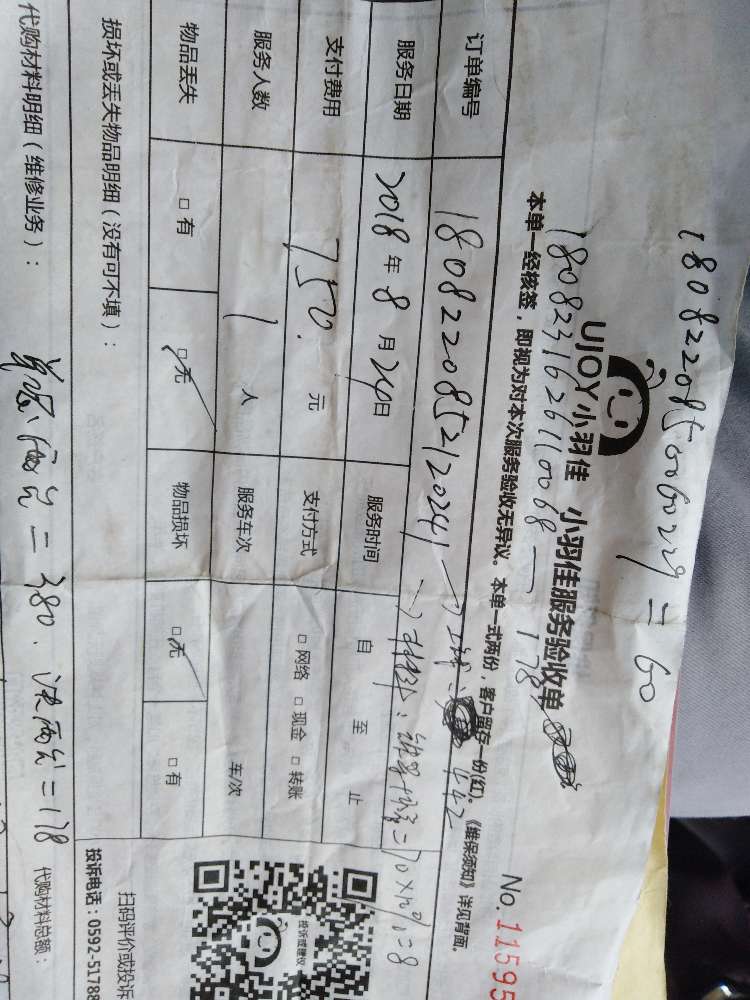 1808220850060229=60
UJOY小羽佳 小羽佳服务验收单
1808231626110068—178
No.11595
本单一经核签，即视为对本次服务验收无异议。本单一式两份，客户留存一份(红)。《维保须知》详见背面。
订单编号 1808220852120241 → 442
服务日期 2018年8月24日 服务时间 自 至 止
=70×12%=8
支付费用 750. 元 支付方式 □网络 □现金 □转账
服务人数 1 人 服务车次 车/次
物品丢失 □有 □无 物品损坏 □无 □有
损坏或丢失物品明细（没有可不填）：
扫码评价或投诉
投诉电话：0592-5178
代购材料明细（维修业务）： =380. 两台=178 代购材料总额：